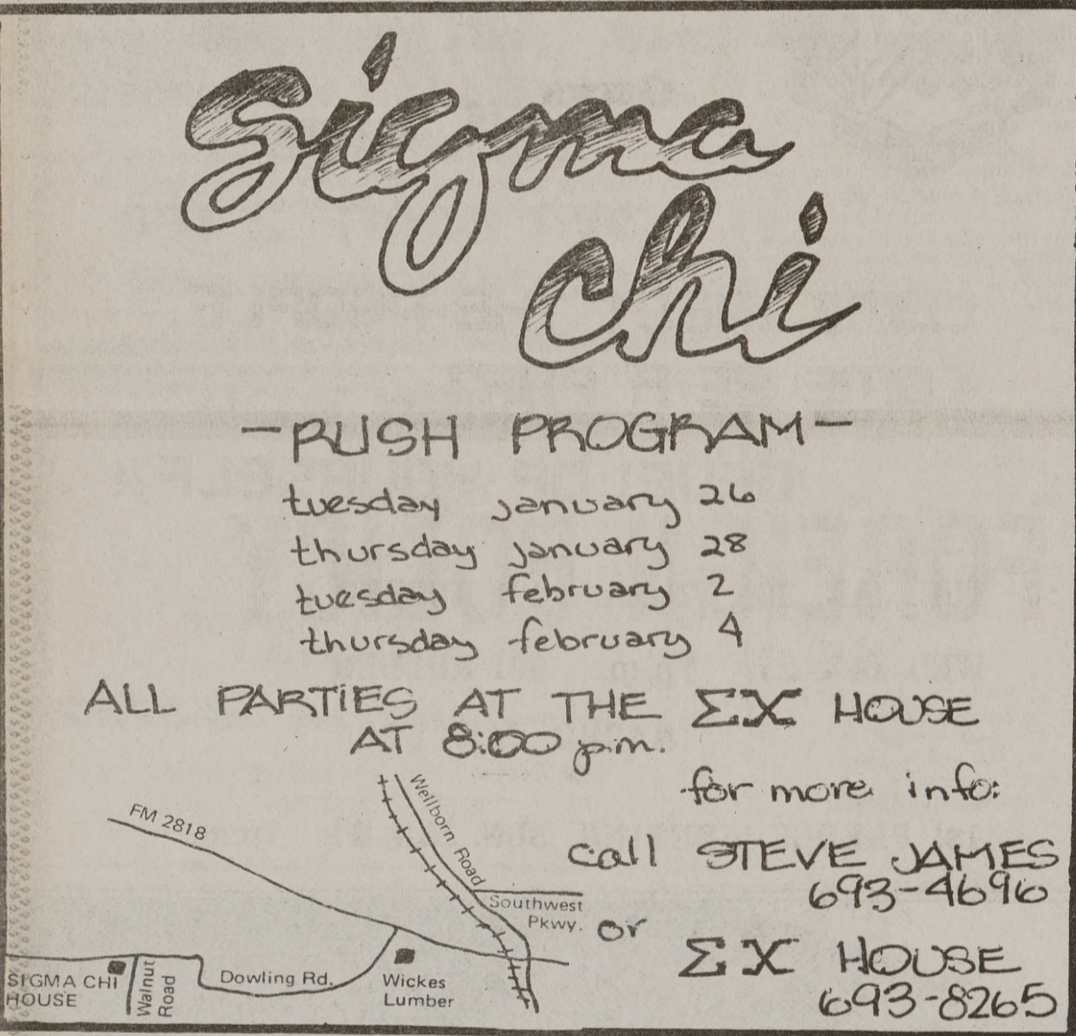 sigma
chi
-RUSH PROGRAM-
tuesday january 26
thursday january 28
tuesday february 2
thursday february 4
ALL PARTiES AT THE ΣΧ HOUSE
AT 8:00 p.m.
for more info:
call STEVE JAMES
693-4696
or
ΣΧ HOUSE
693-8265
FM 2818
Wellborn Road
Southwest
Pkwy.
SIGMA CHI
HOUSE
Walnut
Road
Dowling Rd.
Wickes
Lumber